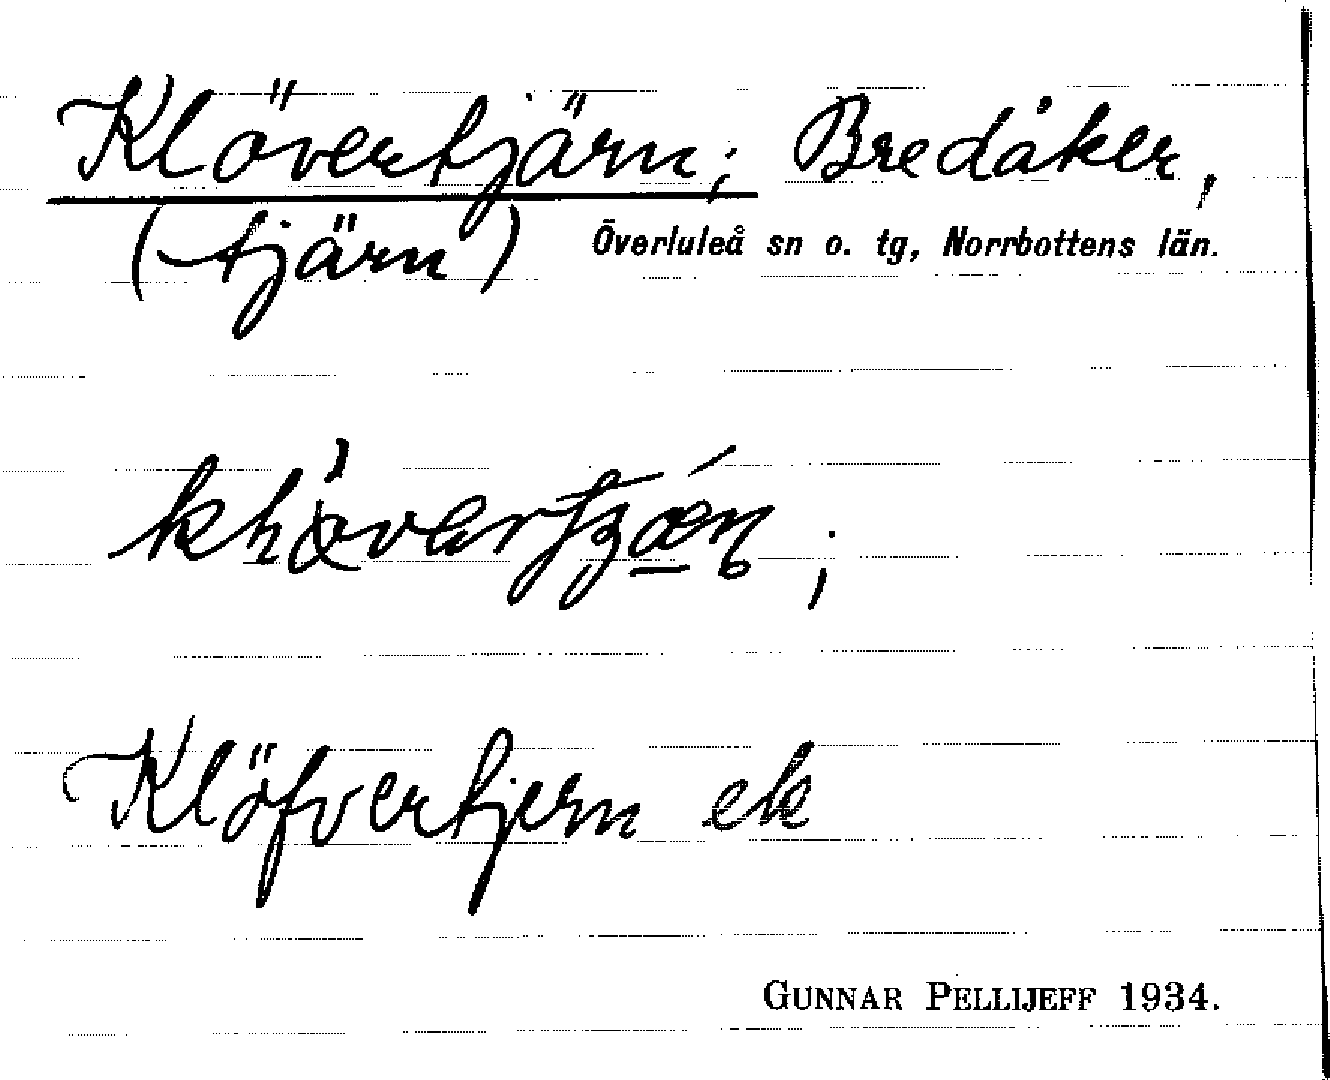 Klövertjärn; Bredåker,
(tjärn) Överluleå sn o. tg, Norrbottens län.
Klöfvertjern ek
GUNNAR PELLIJEFF 1934.